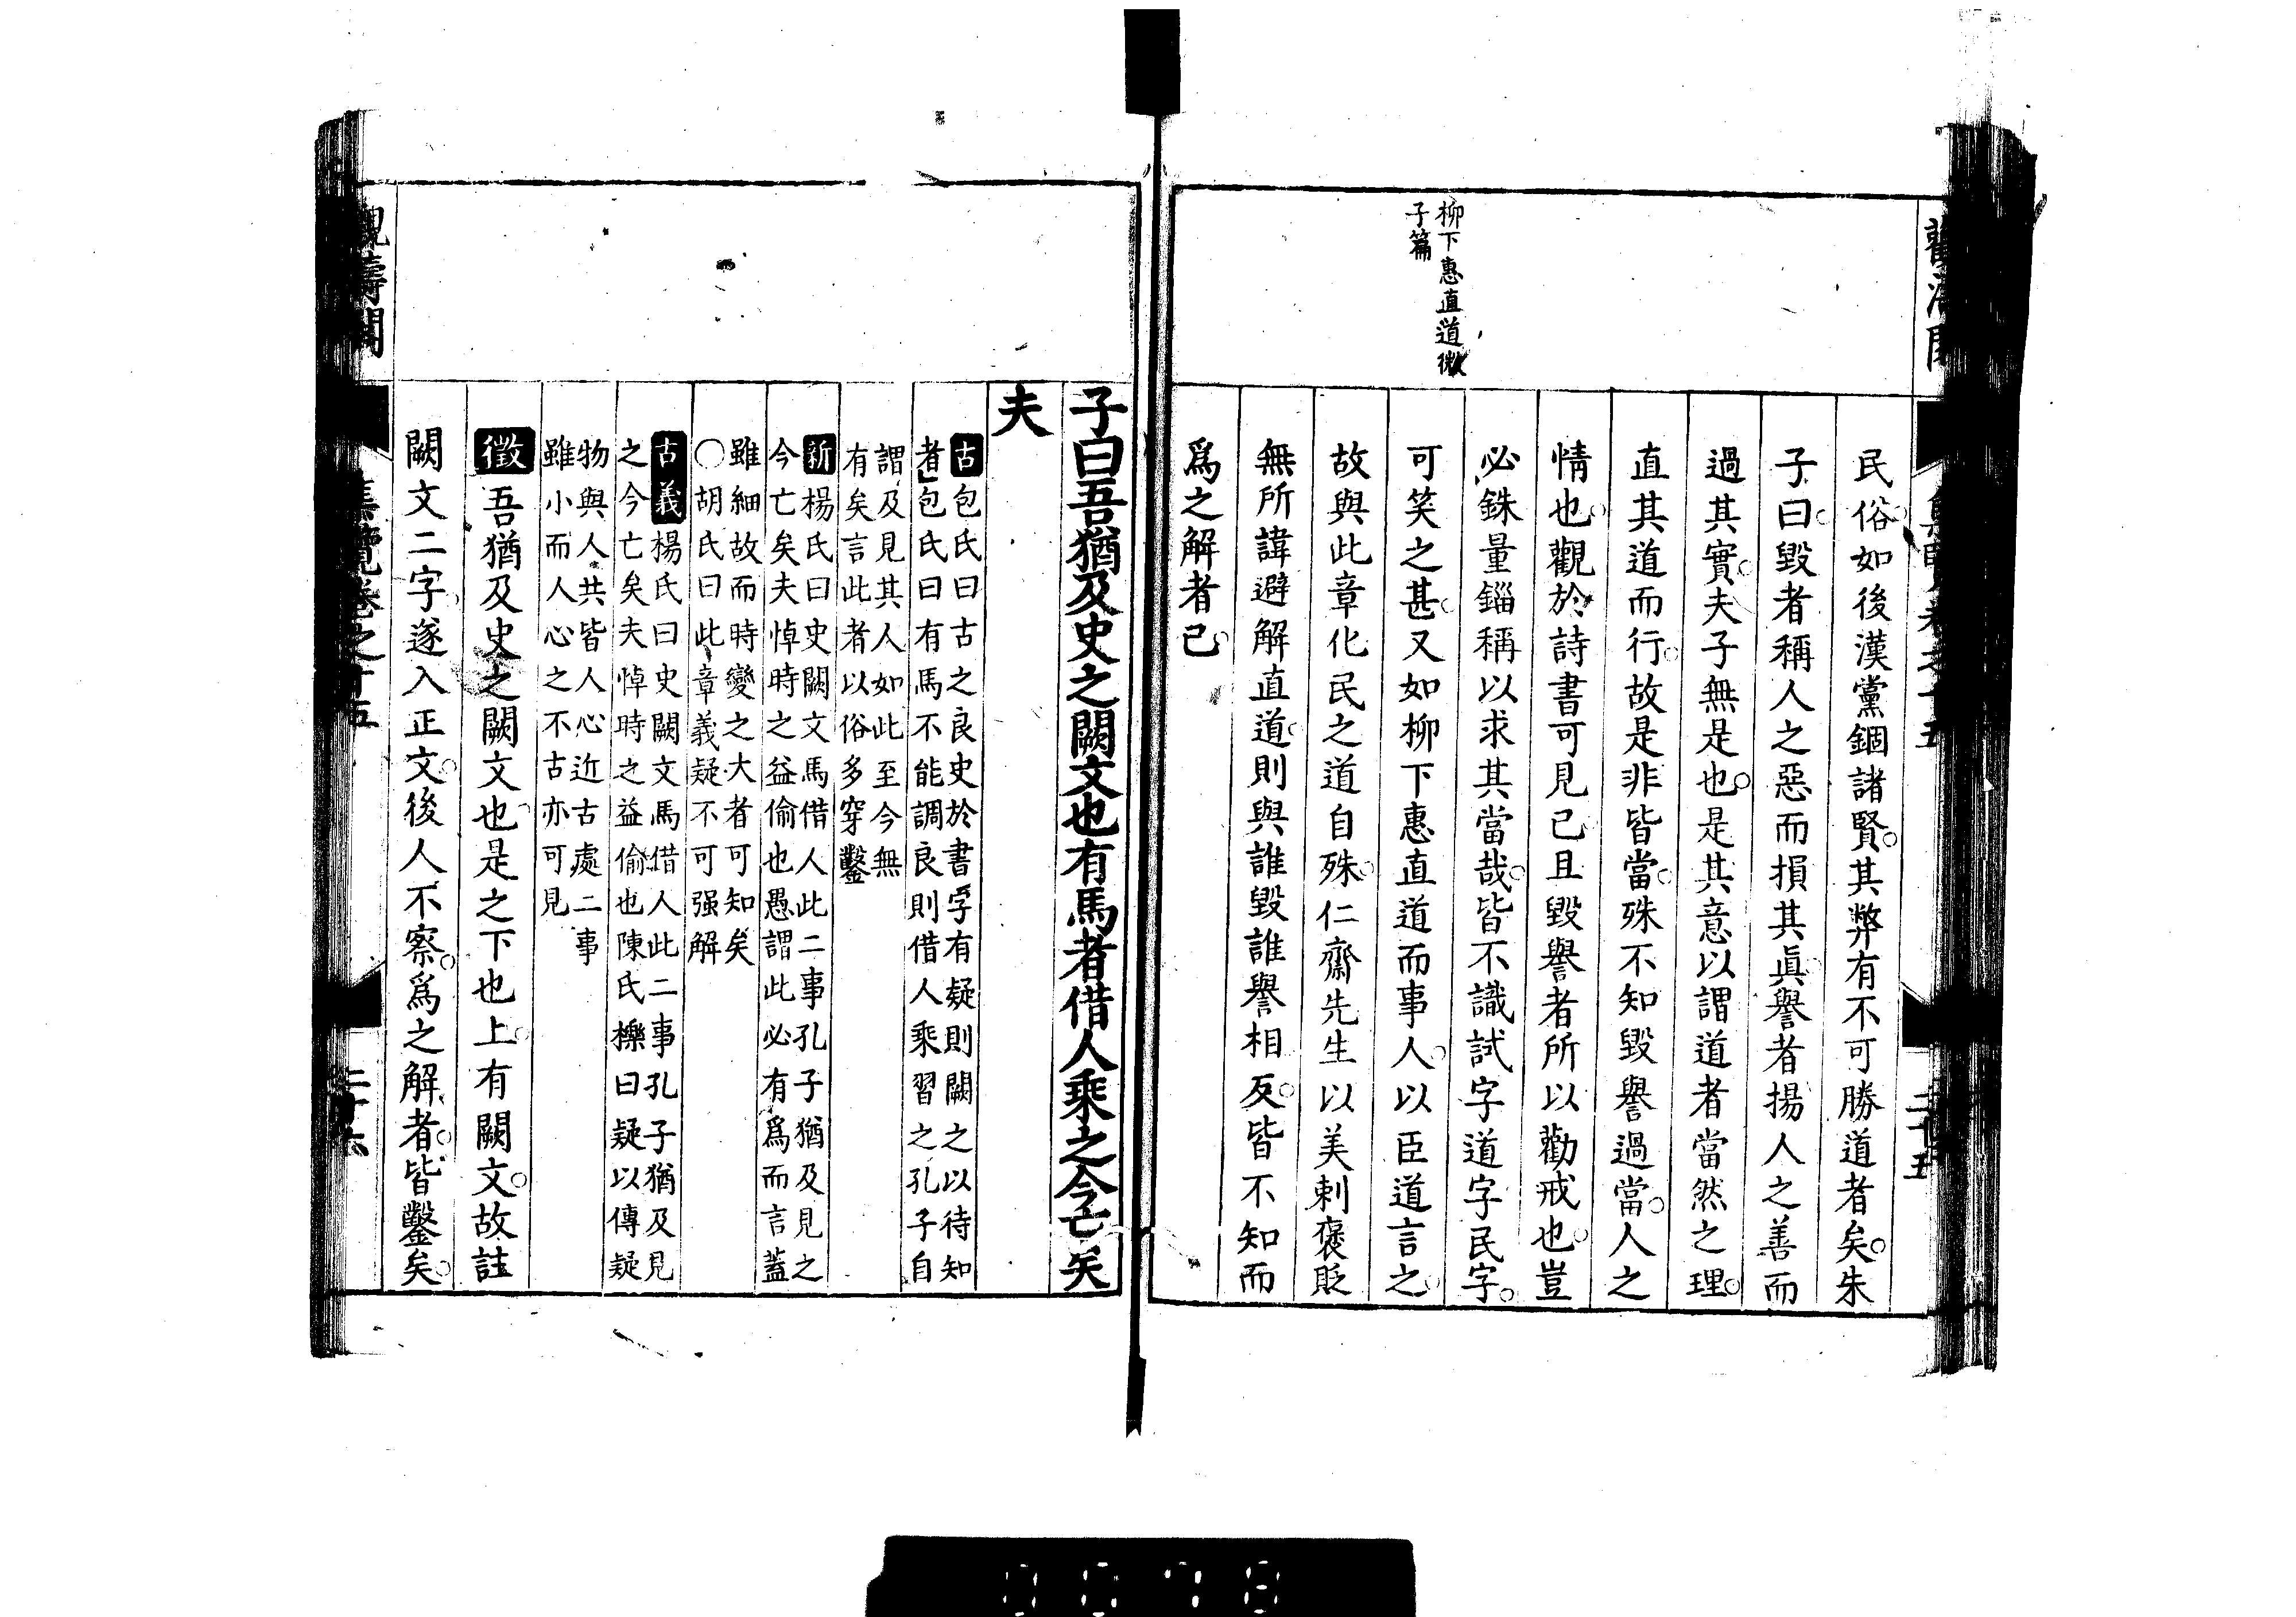 柳下惠直道微
子篇
民俗如後漢黨錮諸賢。其弊有不可勝道者矣。朱
子曰。毀者稱人之惡而損其眞。譽者揚人之善而
過其實。夫子無是也。是其意以謂道者當然之理。
直其道而行。故是非皆當。殊不知毀譽過當。人之
情也。觀於詩書可見已。且毀譽者所以勸戒也。豈
必銖量錙稱以求其當哉。皆不識試字道字民字。
可笑之甚。又如柳下惠直道而事人。以臣道言之。
故與此章化民之道自殊。仁齋先生以美刺褒貶
無所諱避解直道。則與誰毀誰譽相反。皆不知而
爲之解者已。
子曰吾猶及史之闕文也有馬者借人乘之今亡矣
夫
古包氏曰古之良史於書字有疑則闕之以待知
者包氏曰有馬不能調良則借人乘習之孔子自
謂及見其人如此至今無
有矣言此者以俗多穿鑿
新楊氏曰史闕文馬借人此二事孔子猶及見之
今亡矣夫悼時之益偷也愚謂此必有爲而言蓋
雖細故而時變之大者可知矣
○胡氏曰此章義疑不可强解
古義楊氏曰史闕文馬借人此二事孔子猶及見
之今亡矣夫悼時之益偷也陳氏櫟曰疑以傳疑
物與人共皆人心近古處二事
雖小而人心之不古亦可見
徵吾猶及史之闕文也。是之下也上。有闕文。故註
闕文二字。遂入正文。後人不察。爲之解者。皆鑿矣。
集覽卷之十五
二十六